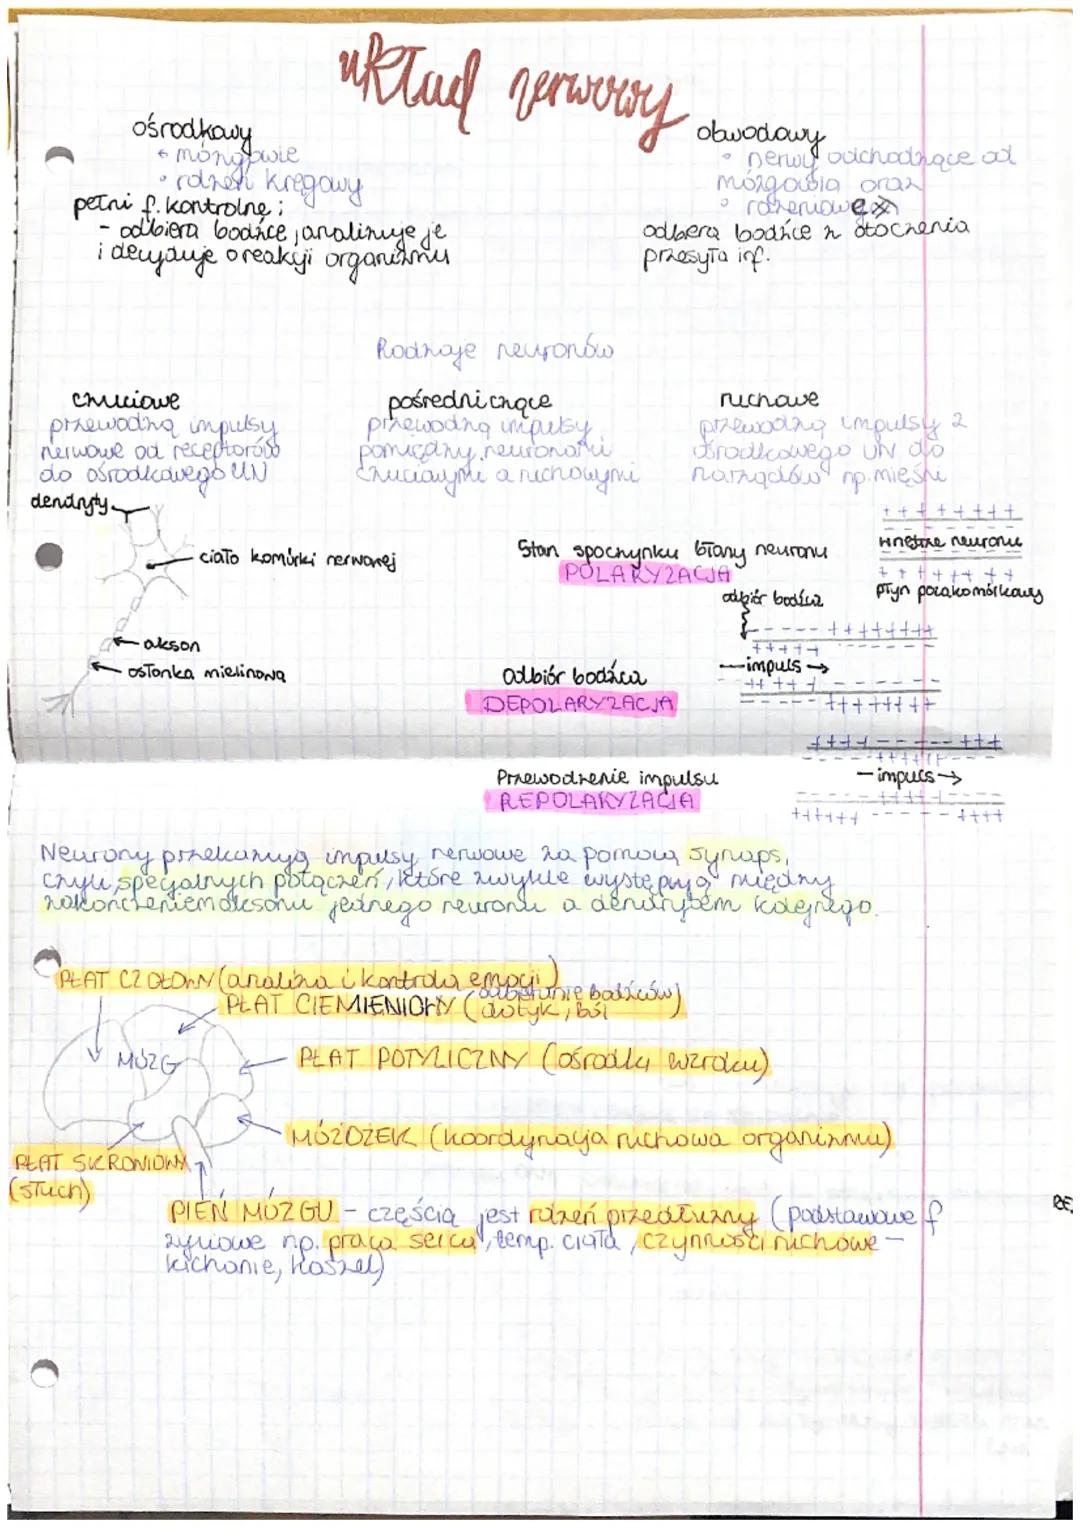 układ nerwowy
ośrodkowy
• mózgowie
• rdzeń kręgowy
pełni f. kontrolne:
- odbiera bodźce, analizuje je
i decyduje o reakcji organizmu
obwodowy
• nerwy odchodzące od
mózgowia oraz
odbiera bodźce z otoczenia
przesyła inf.
Rodzaje neuronów
czuciowe
przewodzą impulsy
nerwowe od receptorów
do ośrodkowego UN
pośredniczące
przewodzą impulsy
pomiędzy neuronami
czuciowymi a ruchowymi
ruchowe
przewodzą impulsy z
ośrodkowego UN do
narządów np. mięśni
dendryty
ciało komórki nerwowej
akson
osłonka mielinowa
Stan spoczynku błany neuronu
POLARYZACJA
+ + + + + + + +
wnętrze neuronu
+ + + + + + + +
płyn pozakomórkowy
odbiór bodźca
- - - - - + + + + + + + +
+ + + + +
- impuls →
Odbiór bodźca
DEPOLARYZACJA
Przewodzenie impulsu
REPOLARYZACJA
- impuls →
Neurony przekazują impulsy nerwowe za pomocą synaps,
czyli specjalnych połączeń, które zwykle występują między
zakończeniem aksonu jednego neuronu a dendrytem kolejnego.
PŁAT CZOŁOWY (analiza i kontrola emocji)
PŁAT CIEMIENIOWY (odbieranie bodźców)
dotyk, ból
MÓZG
PŁAT POTYLICZNY (ośrodki wzroku)
MÓŻDŻEK (koordynacja ruchowa organizmu)
PŁAT SKRONIOWY
(słuch)
PIEŃ MÓZGU - częścią jest rdzeń przedłużny (podstawowe f
życiowe np. praca serca, temp. ciała, czynności ruchowe -
kichanie, kaszel)